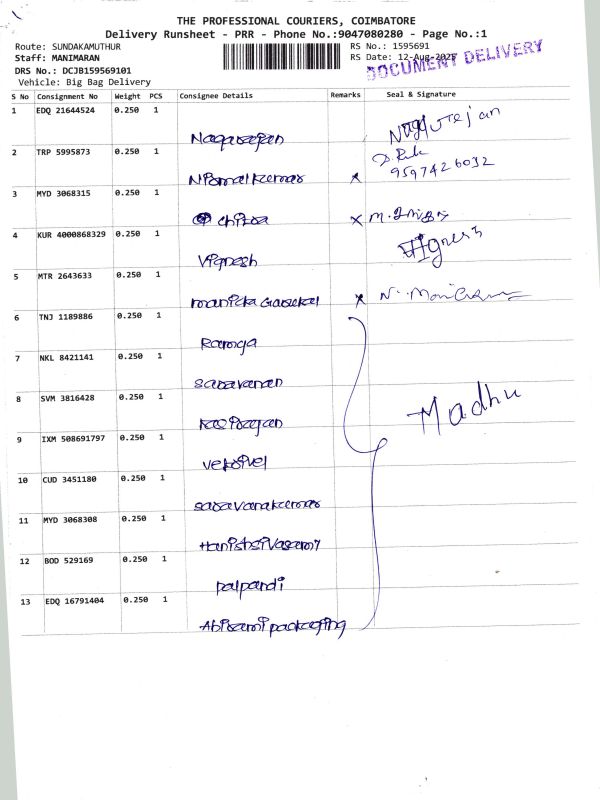 THE PROFESSIONAL COURIERS, COIMBATORE
Delivery Runsheet - PRR - Phone No.:9047080280 - Page No.:1
Route: SUNDAKAMUTHUR
RS No.: 1595691
Staff: MANIMARAN
RS Date: 12-Aug-2025
DOCUMENT DELIVERY
DRS No.: DCJB159569101
Vehicle: Big Bag Delivery
S No Consignment No Weight PCS Consignee Details Remarks Seal & Signature
1 EDQ 21644524 0.250 1
Nagarajan Nagurajan
2 TRP 5995873 0.250 1
Nirmalkumar x 9597426032
3 MYD 3068315 0.250 1
chitra x
4 KUR 4000868329 0.250 1
Vignesh Vignesh
5 MTR 2643633 0.250 1
x
6 TNJ 1189886 0.250 1
Ramya
7 NKL 8421141 0.250 1
saravanan
8 SVM 3816428 0.250 1
Madhu
9 IXM 508691797 0.250 1
vetrivel
10 CUD 3451180 0.250 1
saravanakumar
11 MYD 3068308 0.250 1
12 BOD 529169 0.250 1
palpandi
13 EDQ 16791404 0.250 1
packaging